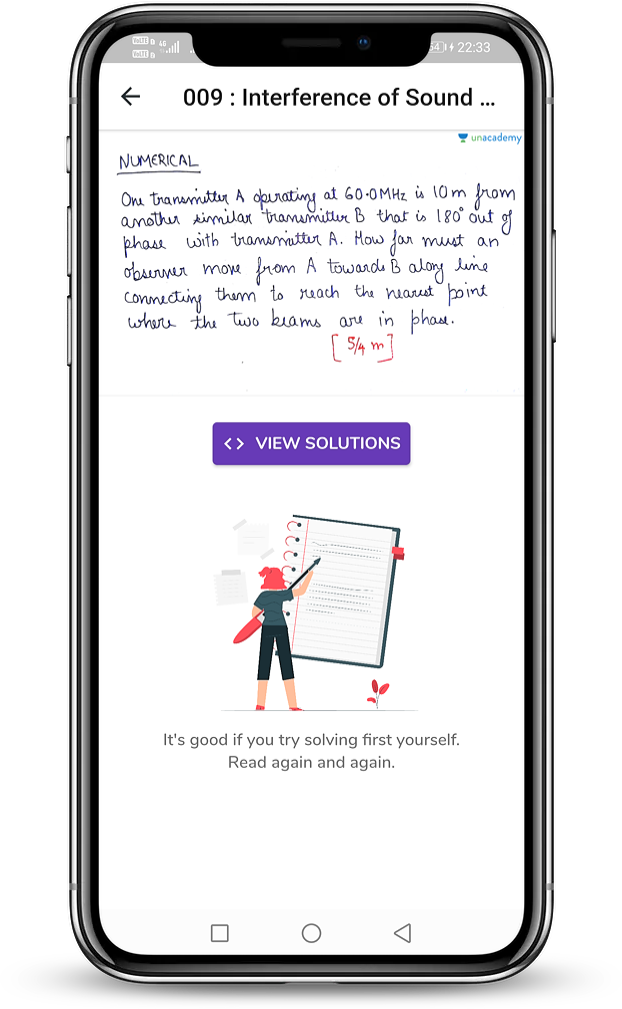 4G
54
22:33
009 : Interference of Sound ...
unacademy
NUMERICAL
One transmitter A operating at 60.0MHz is 10m from
another similar transmitter B that is 180° out of
phase with transmitter A. How far must an
observer move from A towards B along line
connecting them to reach the nearest point
where the two beams are in phase.
[5/4 m]
<> VIEW SOLUTIONS
It's good if you try solving first yourself.
Read again and again.